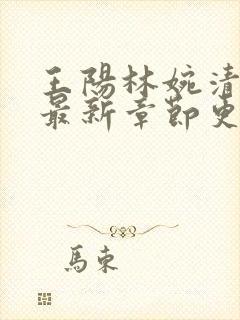 王陽林婉清
最新章節更
馬束